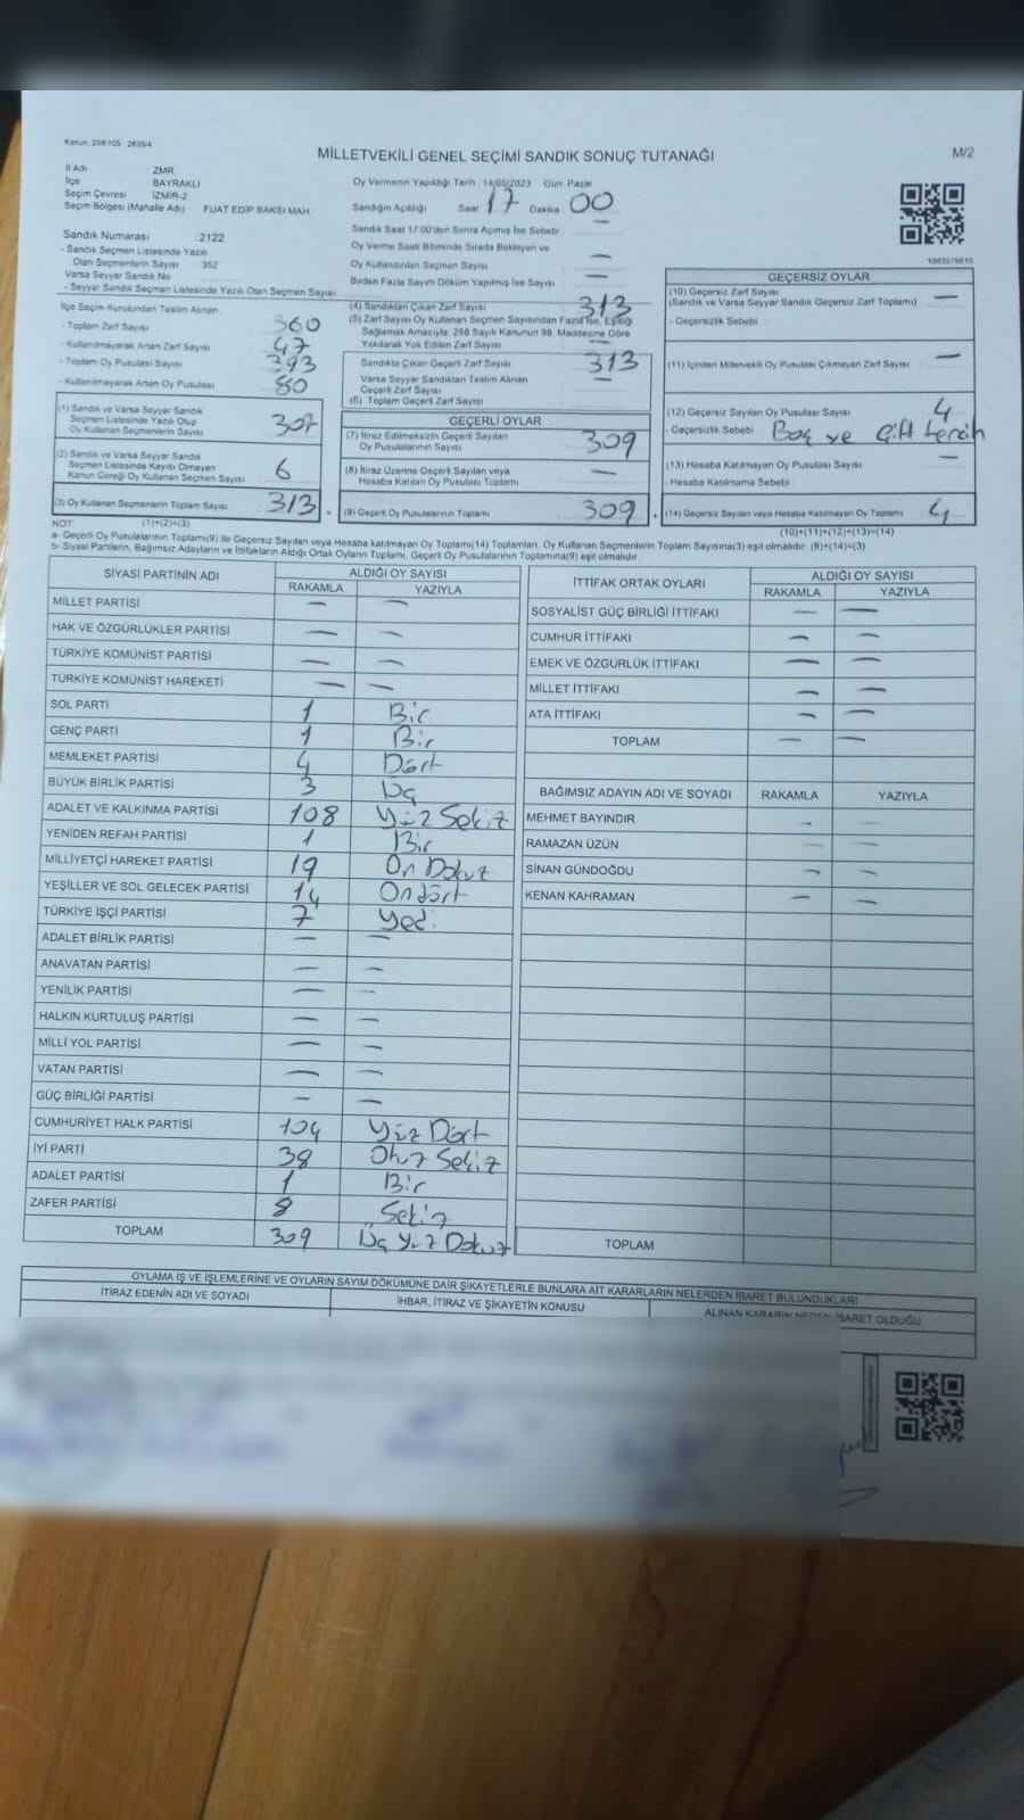 MİLLETVEKİLİ GENEL SEÇİMİ SANDIK SONUÇ TUTANAĞI
M/2
İl Adı ZMR
İlçe BAYRAKLI
Seçim Çevresi İZMİR-2
Seçim Bölgesi (Mahalle Adı) FUAT EDİP BAKSI MAH
Sandık Numarası 2122
- Sandık Seçmen Listesinde Yazılı
Olan Seçmenlerin Sayısı 352
Varsa Seyyar Sandık No
- Seyyar Sandık Seçmen Listesinde Yazılı Olan Seçmen Sayısı
Oy Vermenin Yapıldığı Tarih : 14/05/2023 Gün: Pazar
Sandığın Açıldığı Saat 17 Dakika 00
Sandık Saat 17:00'den Sonra Açılmış İse Sebebi —
Oy Verme Saati Bitiminde Sırada Bekleyen ve
Oy Kullandırılan Seçmen Sayısı —
Birden Fazla Sayım Döküm Yapılmış İse Sayısı —
İlçe Seçim Kurulundan Teslim Alınan
- Toplam Zarf Sayısı 360
- Kullanılmayarak Artan Zarf Sayısı 47
- Toplam Oy Pusulası Sayısı 393
- Kullanılmayarak Artan Oy Pusulası 80
(1) Sandık ve Varsa Seyyar Sandık
Seçmen Listesinde Yazılı Olup
Oy Kullanan Seçmenlerin Sayısı 307
(2) Sandık ve Varsa Seyyar Sandık
Seçmen Listesinde Kayıtlı Olmayan
Kanun Gereği Oy Kullanan Seçmen Sayısı 6
(3) Oy Kullanan Seçmenlerin Toplam Sayısı 313
(1)+(2)=(3)
(4) Sandıktan Çıkan Zarf Sayısı 313
(5) Zarf Sayısı Oy Kullanan Seçmen Sayısından Fazla İse, Eşitliği
Sağlamak Amacıyla; 298 Sayılı Kanunun 98. Maddesine Göre
Yakılarak Yok Edilen Zarf Sayısı
Sandıkta Çıkan Geçerli Zarf Sayısı 313
Varsa Seyyar Sandıktan Teslim Alınan
Geçerli Zarf Sayısı —
(6) Toplam Geçerli Zarf Sayısı
GEÇERLİ OYLAR
(7) İtiraz Edilmeksizin Geçerli Sayılan
Oy Pusulalarının Sayısı 309
(8) İtiraz Üzerine Geçerli Sayılan veya
Hesaba Katılan Oy Pusulası Toplamı —
(9) Geçerli Oy Pusulalarının Toplamı 309
GEÇERSİZ OYLAR
(10) Geçersiz Zarf Sayısı
(Sandık ve Varsa Seyyar Sandık Geçersiz Zarf Toplamı) —
- Geçersizlik Sebebi
(11) İçinden Milletvekili Oy Pusulası Çıkmayan Zarf Sayısı —
(12) Geçersiz Sayılan Oy Pusulası Sayısı 4
- Geçersizlik Sebebi Boş ve Çift tercih
(13) Hesaba Katılmayan Oy Pusulası Sayısı —
- Hesaba Katılmama Sebebi
(14) Geçersiz Sayılan veya Hesaba Katılmayan Oy Toplamı 4
(10)+(11)+(12)+(13)=(14)
NOT:
a- Geçerli Oy Pusulalarının Toplamı(9) ile Geçersiz Sayılan veya Hesaba katılmayan Oy Toplamı(14) Toplamları, Oy Kullanan Seçmenlerin Toplam Sayısına(3) eşit olmalıdır. (9)+(14)=(3)
b- Siyasi Partilerin, Bağımsız Adayların ve İttifakların Aldığı Ortak Oyların Toplamı, Geçerli Oy Pusulalarının Toplamına(9) eşit olmalıdır
SİYASİ PARTİNİN ADI ALDIĞI OY SAYISI
RAKAMLA YAZIYLA
MİLLET PARTİSİ — —
HAK VE ÖZGÜRLÜKLER PARTİSİ — —
TÜRKİYE KOMÜNİST PARTİSİ — —
TÜRKİYE KOMÜNİST HAREKETİ — —
SOL PARTİ 1 Bir
GENÇ PARTİ 1 Bir
MEMLEKET PARTİSİ 4 Dört
BÜYÜK BİRLİK PARTİSİ 3 Üç
ADALET VE KALKINMA PARTİSİ 108 Yüz Sekiz
YENİDEN REFAH PARTİSİ 1 Bir
MİLLİYETÇİ HAREKET PARTİSİ 19 On Dokuz
YEŞİLLER VE SOL GELECEK PARTİSİ 14 Ondört
TÜRKİYE İŞÇİ PARTİSİ 7 Yedi
ADALET BİRLİK PARTİSİ — —
ANAVATAN PARTİSİ — —
YENİLİK PARTİSİ — —
HALKIN KURTULUŞ PARTİSİ — —
MİLLİ YOL PARTİSİ — —
VATAN PARTİSİ — —
GÜÇ BİRLİĞİ PARTİSİ — —
CUMHURİYET HALK PARTİSİ 104 Yüz Dört
İYİ PARTİ 38 Otuz Sekiz
ADALET PARTİSİ 1 Bir
ZAFER PARTİSİ 8 Sekiz
TOPLAM 309 Üç Yüz Dokuz
İTTİFAK ORTAK OYLARI ALDIĞI OY SAYISI
RAKAMLA YAZIYLA
SOSYALİST GÜÇ BİRLİĞİ İTTİFAKI — —
CUMHUR İTTİFAKI — —
EMEK VE ÖZGÜRLÜK İTTİFAKI — —
MİLLET İTTİFAKI — —
ATA İTTİFAKI — —
TOPLAM — —
BAĞIMSIZ ADAYIN ADI VE SOYADI RAKAMLA YAZIYLA
MEHMET BAYINDIR — —
RAMAZAN ÜZÜN — —
SİNAN GÜNDOĞDU — —
KENAN KAHRAMAN — —
TOPLAM
OYLAMA İŞ VE İŞLEMLERİNE VE OYLARIN SAYIM DÖKÜMÜNE DAİR ŞİKAYETLERLE BUNLARA AİT KARARLARIN NELERDEN İBARET BULUNDUKLARI
İTİRAZ EDENİN ADI VE SOYADI
İHBAR, İTİRAZ VE ŞİKAYETİN KONUSU
ALINAN KARARIN NEDEN İBARET OLDUĞU